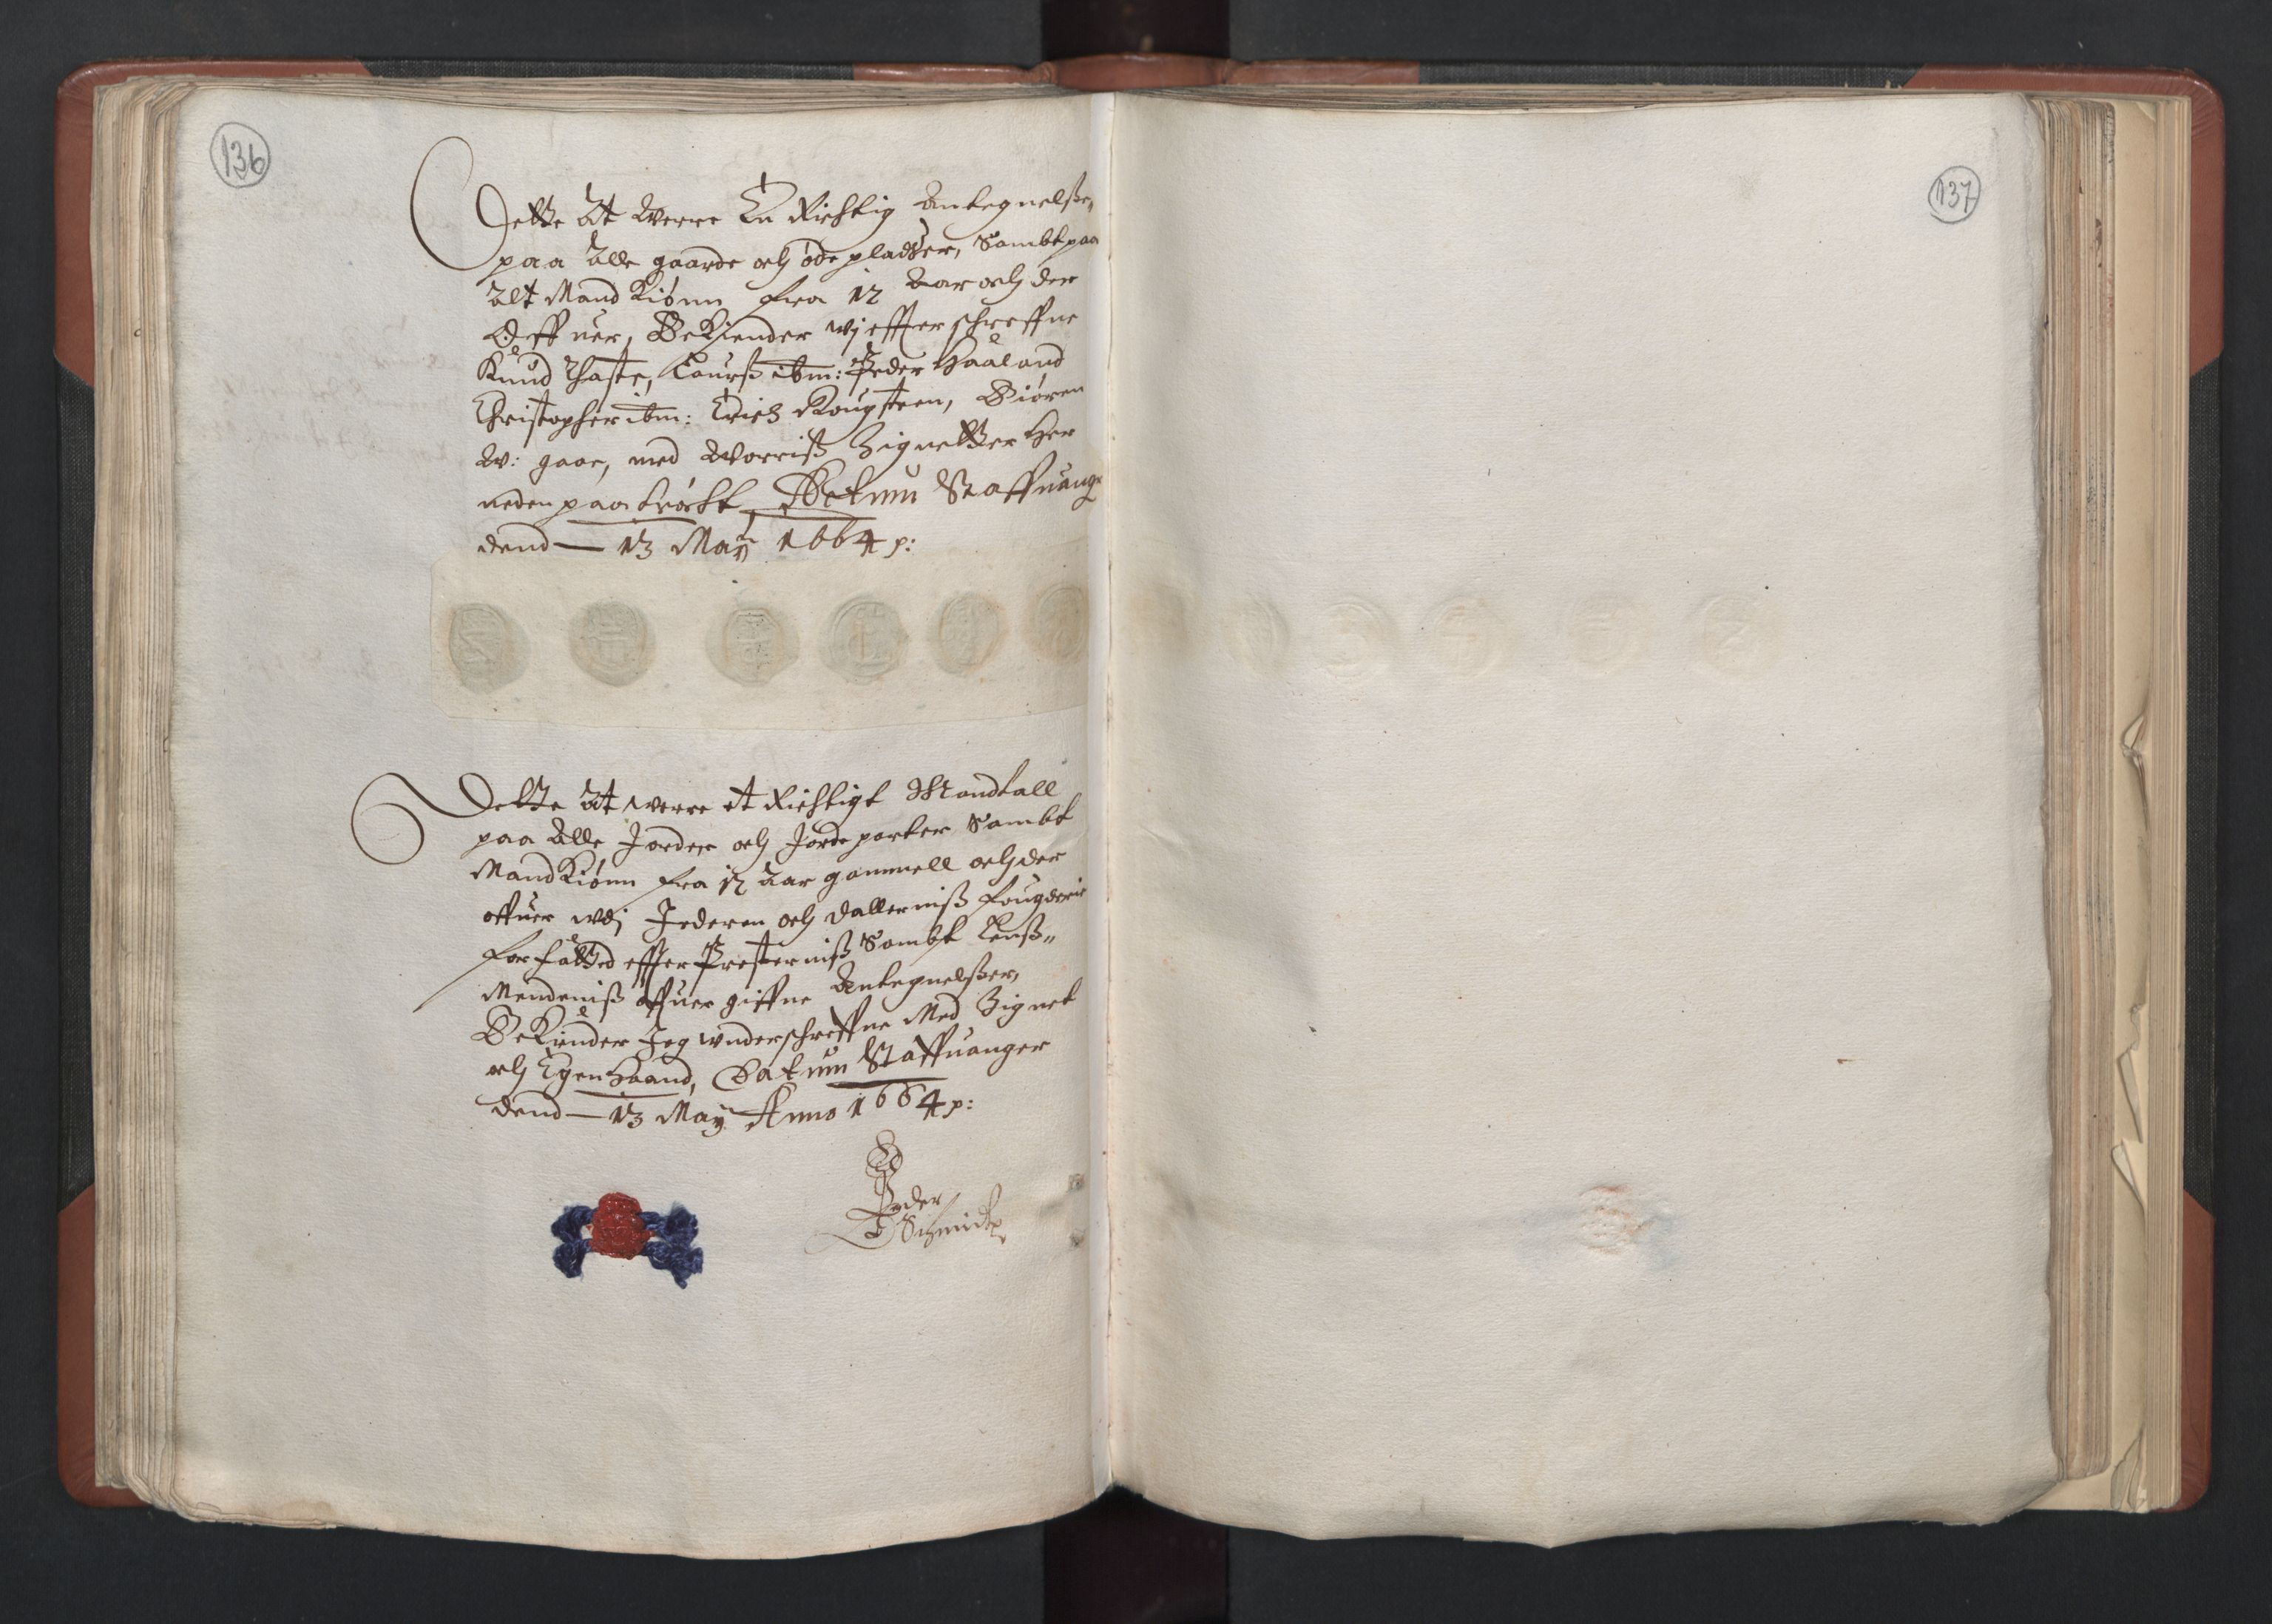 136
Dette Att Werre En Richtig Antegnelsze„
paa Alle gaarde och øde pladtzer, Sambt paa
Alt Mand Kiønn fra 12 Aar och der
Offuer, Bekiender wj effterschreffne
Knud Laursz ibm: Peder Haaland
Christopher ibm: Erich Biøren
W: gaar, med Worrisz Zignetter Her
neden paa trøcht, Datum Staffuang:
dend — 13 Maÿ 1664 p:
Dette Att werre et Richtigt Mandtall
paa Alle Jorder och Jordeparter Sambt
Mand Kiønn fra 12 Aar gammell och der
offuer udj Jederen och Dallernisz fougderie
forfatted effter Presternisz Sambt Lensz„
Mendenisz offuer giffne Antegnelszer,
Bekiender Jeg underschreffne Med Zignet
och Egen Haand, Datum Staffuanger
dend — 13 Maÿ Anno 1664 p:
Peder
Schmidt
137